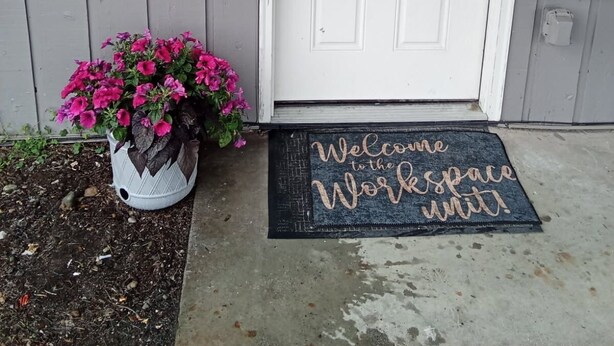 Welcome
to the
Workspace
unit!